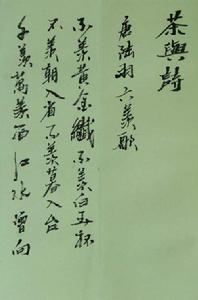 茶與詩
唐陸羽六羨歌
不羨黃金纖不羨白玉杯
不羨朝入省不羨暮入台
千羨萬羨西江水曾向